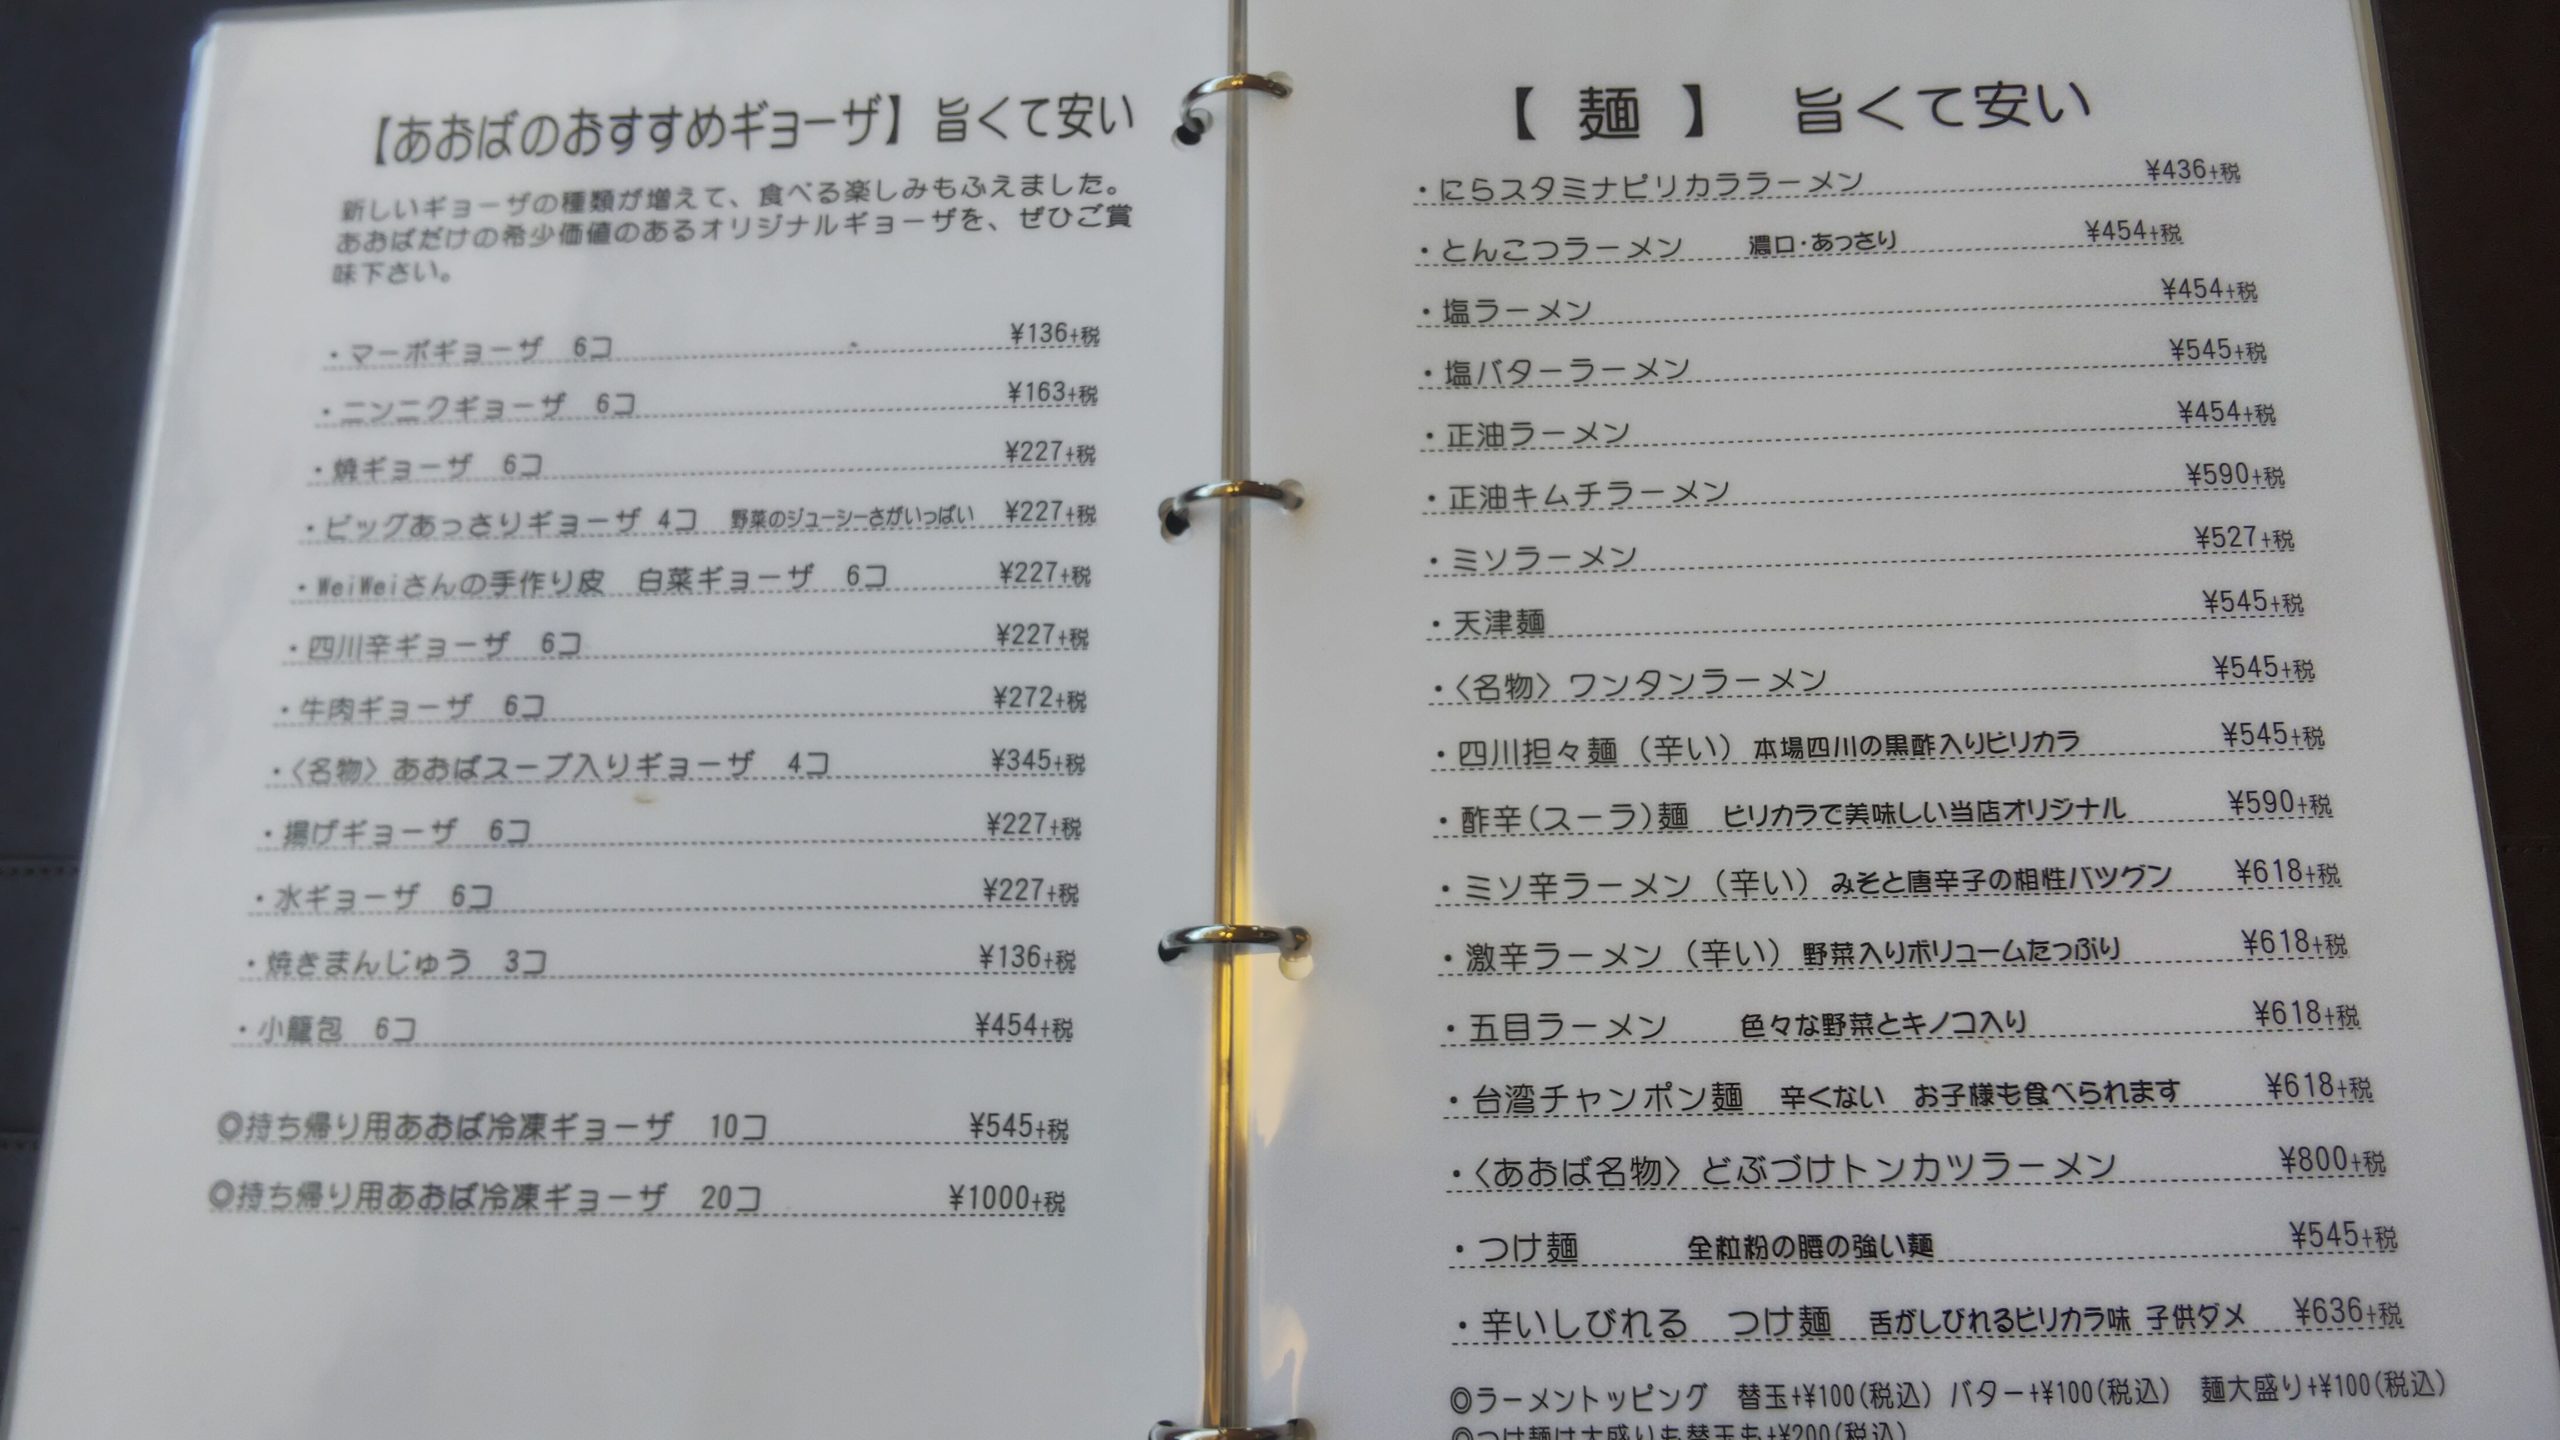 【あおばのおすすめギョーザ】旨くて安い
新しいギョーザの種類が増えて、食べる楽しみもふえました。
あおばだけの希少価値のあるオリジナルギョーザを、ぜひご賞
味下さい。
・マーボギョーザ 6コ ¥136+税
・ニンニクギョーザ 6コ ¥163+税
・焼ギョーザ 6コ ¥227+税
・ビッグあっさりギョーザ 4コ 野菜のジューシーさがいっぱい ¥227+税
・WeiWeiさんの手作り皮 白菜ギョーザ 6コ ¥227+税
・四川辛ギョーザ 6コ ¥227+税
・牛肉ギョーザ 6コ ¥272+税
・〈名物〉あおばスープ入りギョーザ 4コ ¥345+税
・揚げギョーザ 6コ ¥227+税
・水ギョーザ 6コ ¥227+税
・焼きまんじゅう 3コ ¥136+税
・小籠包 6コ ¥454+税
◎持ち帰り用あおば冷凍ギョーザ 10コ ¥545+税
◎持ち帰り用あおば冷凍ギョーザ 20コ ¥1000+税
【 麺 】 旨くて安い
・にらスタミナピリカララーメン ¥436+税
・とんこつラーメン 濃口・あっさり ¥454+税
・塩ラーメン ¥454+税
・塩バターラーメン ¥545+税
・正油ラーメン ¥454+税
・正油キムチラーメン ¥590+税
・ミソラーメン ¥527+税
・天津麺 ¥545+税
・〈名物〉ワンタンラーメン ¥545+税
・四川担々麺（辛い）本場四川の黒酢入りピリカラ ¥545+税
・酢辛(スーラ)麺 ピリカラで美味しい当店オリジナル ¥590+税
・ミソ辛ラーメン（辛い）みそと唐辛子の相性バツグン ¥618+税
・激辛ラーメン（辛い）野菜入りボリュームたっぷり ¥618+税
・五目ラーメン 色々な野菜とキノコ入り ¥618+税
・台湾チャンポン麺 辛くない お子様も食べられます ¥618+税
・〈あおば名物〉どぶづけトンカツラーメン ¥800+税
・つけ麺 全粒粉の腰の強い麺 ¥545+税
・辛いしびれる つけ麺 舌がしびれるピリカラ味 子供ダメ ¥636+税
◎ラーメントッピング 替玉+¥100(税込) バター+¥100(税込) 麺大盛り+¥100(税込)
◎つけ麺は大盛りも替玉も+¥200(税込)